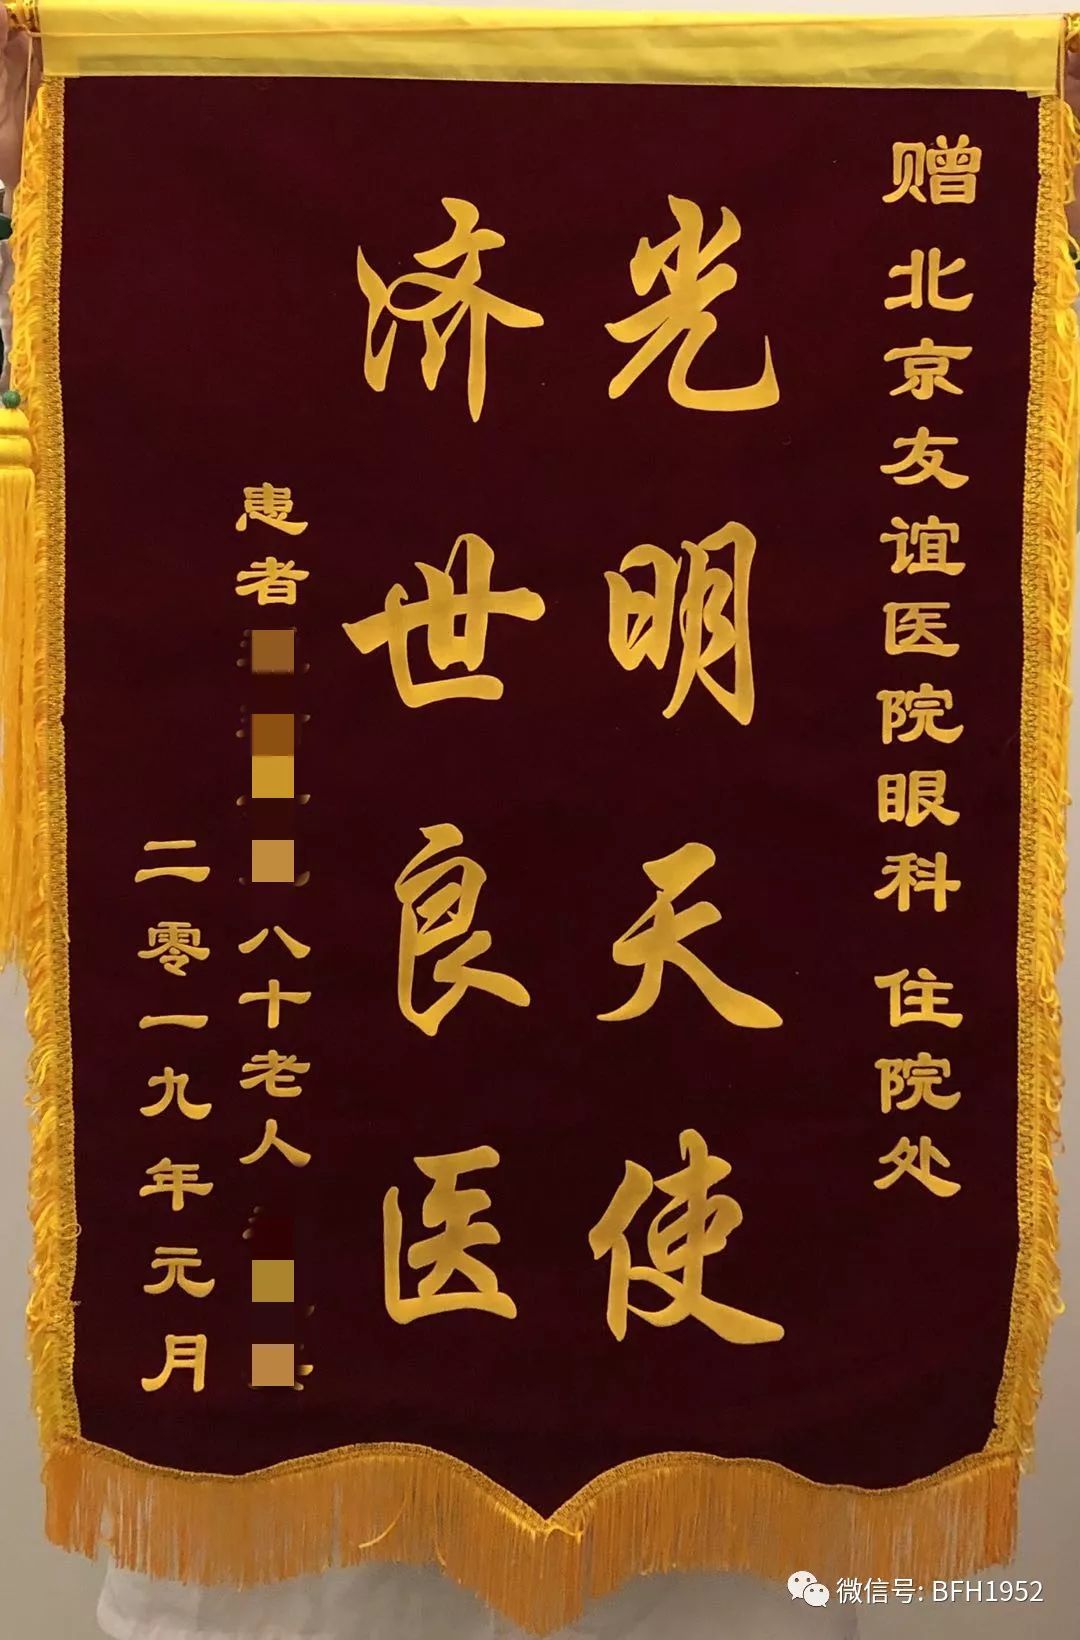 赠 北京友谊医院眼科 住院处
光明天使
济世良医
患者 八十老人
二零一九年元月
微信号: BFH1952